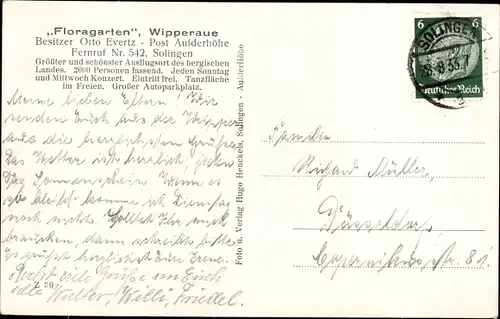 „Floragarten", Wipperaue
Besitzer Otto Evertz - Post Aufderhöhe
Fernruf Nr. 542, Solingen
Größter und schönster Ausflugsort des bergischen
Landes. 2000 Personen fassend. Jeden Sonntag
und Mittwoch Konzert. Eintritt frei. Tanzfläche
im Freien. Großer Autoparkplatz.
Meine lieben Eltern! Wir
senden Euch aus der Wipper
aue die herzlichsten Grüße
Das Wetter ist herrlich, jeden
Tag Sonnenschein. Wenn es
so bleibt komme ich Dienstag
noch nicht. Solltet Ihr mich
brauchen, dann schreibt bitte
Es grüßt herzlichst Eure Irene.
Recht viele Grüße an Euch
alle Walter, Willi, Friedel.
Z 30
Foto u. Verlag Hugo Henckels, Solingen - Aufderhöhe
6 6
Deutsches Reich
SOLINGEN
Familie
Richard Müller,
Düsseldorf,
Copernikus str. 81.